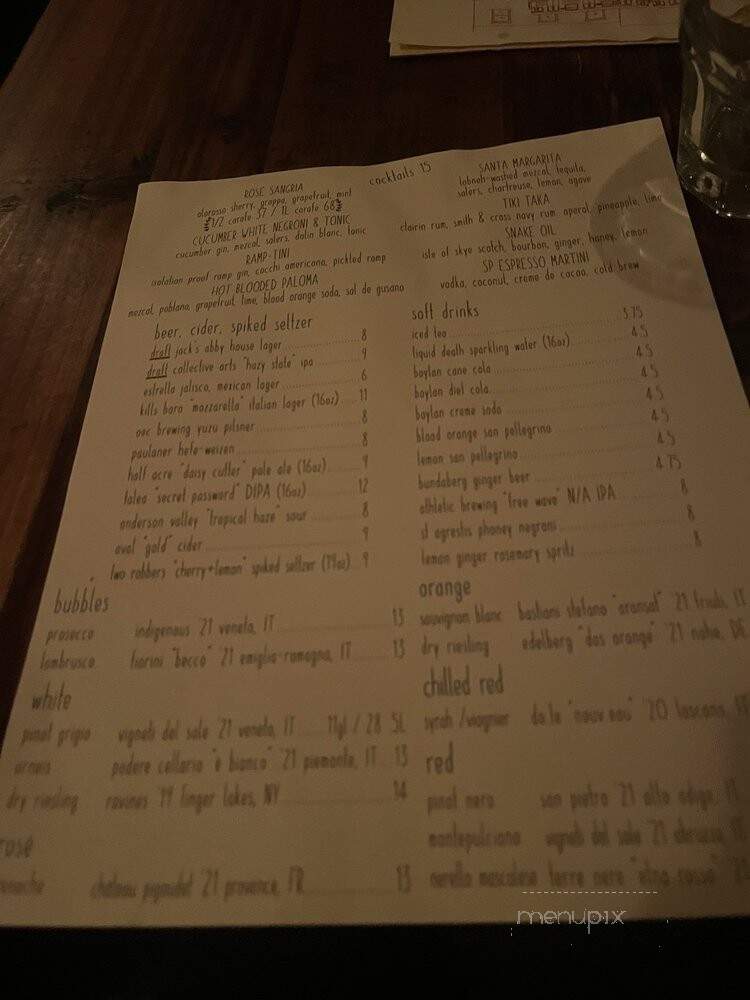 cocktails 15
ROSE SANGRIA
oloroso sherry, grappa, grapefruit, mint
1/2 carafe 37 / 1L carafe 68
CUCUMBER WHITE NEGRONI & TONIC
cucumber gin, mezcal, salers, dolin blanc, tonic
RAMP-TINI
isolation proof ramp gin, cocchi americano, pickled ramp
HOT BLOODED PALOMA
mezcal, poblano, grapefruit, lime, blood orange soda, sal de gusano
SANTA MARGARITA
labneh-washed mezcal, tequila,
salers, chartreuse, lemon, agave
TIKI TAKA
clairin rum, smith & cross navy rum, aperol, pineapple, lime
SNAKE OIL
isle of skye scotch, bourbon, ginger, honey, lemon
SP ESPRESSO MARTINI
vodka, coconut, creme de cacao, cold brew
beer, cider, spiked seltzer
draft jack's abby house lager 8
draft collective arts "hazy state" ipa 9
estrella jalisco, mexican lager 6
kills boro "mozzarella" italian lager (16oz) 11
oec brewing yuzu pilsner 8
paulaner hefe-weizen 8
half acre "daisy cutter" pale ale (16oz) 9
talea "secret password" DIPA (16oz) 12
anderson valley "tropical haze" sour 8
aval "gold" cider 9
two robbers "cherry+lemon" spiked seltzer (19oz) 9
soft drinks
iced tea 3.75
liquid death sparkling water (16oz) 4.5
boylan cane cola 4.5
boylan diet cola 4.5
boylan creme soda 4.5
blood orange san pellegrino 4.5
lemon san pellegrino 4.5
bundaberg ginger beer 4.75
athletic brewing "free wave" N/A IPA 8
st agrestis phoney negroni 8
lemon ginger rosemary spritz 8
bubbles
prosecco indigenous '21 veneto, IT 13
lambrusco fiorini "becco" '21 emilia-romagna, IT 13
white
pinot grigio vigneti del sole '21 veneto, IT 11gl / 28 .5L
arneis podere cellario "e bianco" '21 piemonte, IT 13
dry riesling ravines '19 finger lakes, NY 14
rose
chateau pigoudet '21 provence, FR 13
orange
sauvignon blanc bastiani stefano '21 friuli,
dry riesling edelberg "das orange" '21 nahe, DE
chilled red
syrah / viognier '20 toscana,
red
pinot nero san pietro '21 alto adige, IT
montepulciano vigneti del sole '21 abruzzo,
nerello mascalese terre nere "etna rosso"
menupix